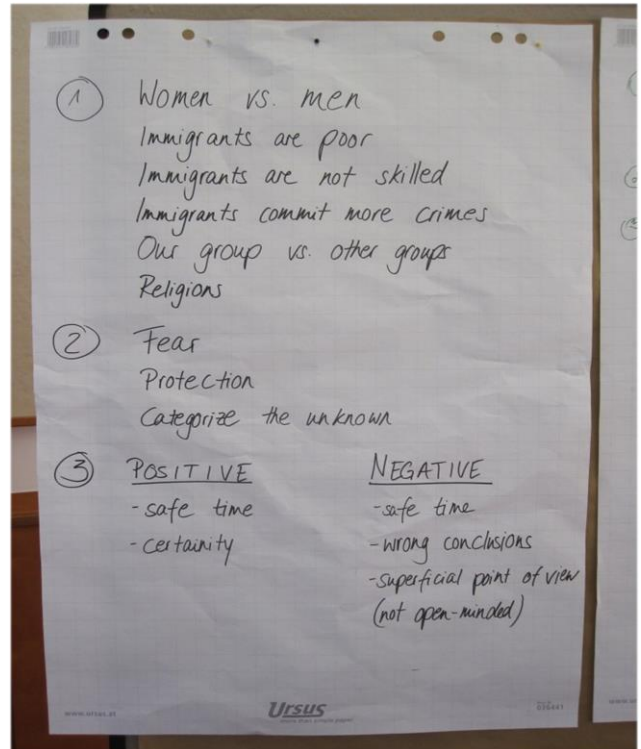 1 Women vs. men
Immigrants are poor
Immigrants are not skilled
Immigrants commit more crimes
Our group vs. other groups
Religions
2 Fear
Protection
Categorize the unknown
3 POSITIVE
- safe time
- certainity
NEGATIVE
- safe time
- wrong conclusions
- superficial point of view
(not open-minded)
Ursus